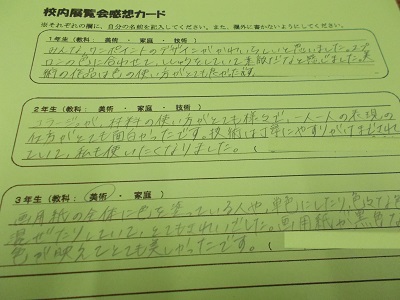 校内展覧会感想カード
※それぞれの欄に、自分の名前を記入してください。また、欄外に書かないようにしてください。
1年生(教科: 美術 ・ 家庭 ・ 技術)
みんな、ワンポイントのデザインがかわいらしいと思いました。エプ
ロンの色に合わせて、ししゅうをしていて素敵だなと思いました。美
術の作品は色の使い方がとても良かったです。
2年生(教科: 美術 ・ 家庭 ・ 技術)
コラージュが、材料の使い方がとても様々で、一人一人の表現の
仕方がとても面白かったです。技術は丁寧にやすりがけまでされ
ていて、私も使いたくなりました。(
3年生(教科: 美術 ・ 家庭)
画用紙の全体に色を塗っている人や、単色にしたり、色々な色
混ぜたりしていて、とてもきれいでした。画用紙が黒色な
色が映えてとても美しかったです。(